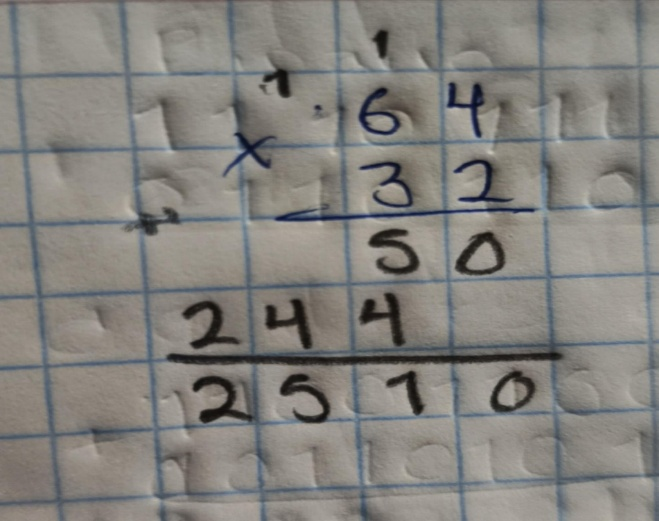 1
1 6 4
× 3 2
+
5 0
2 4 4
2 5 1 0